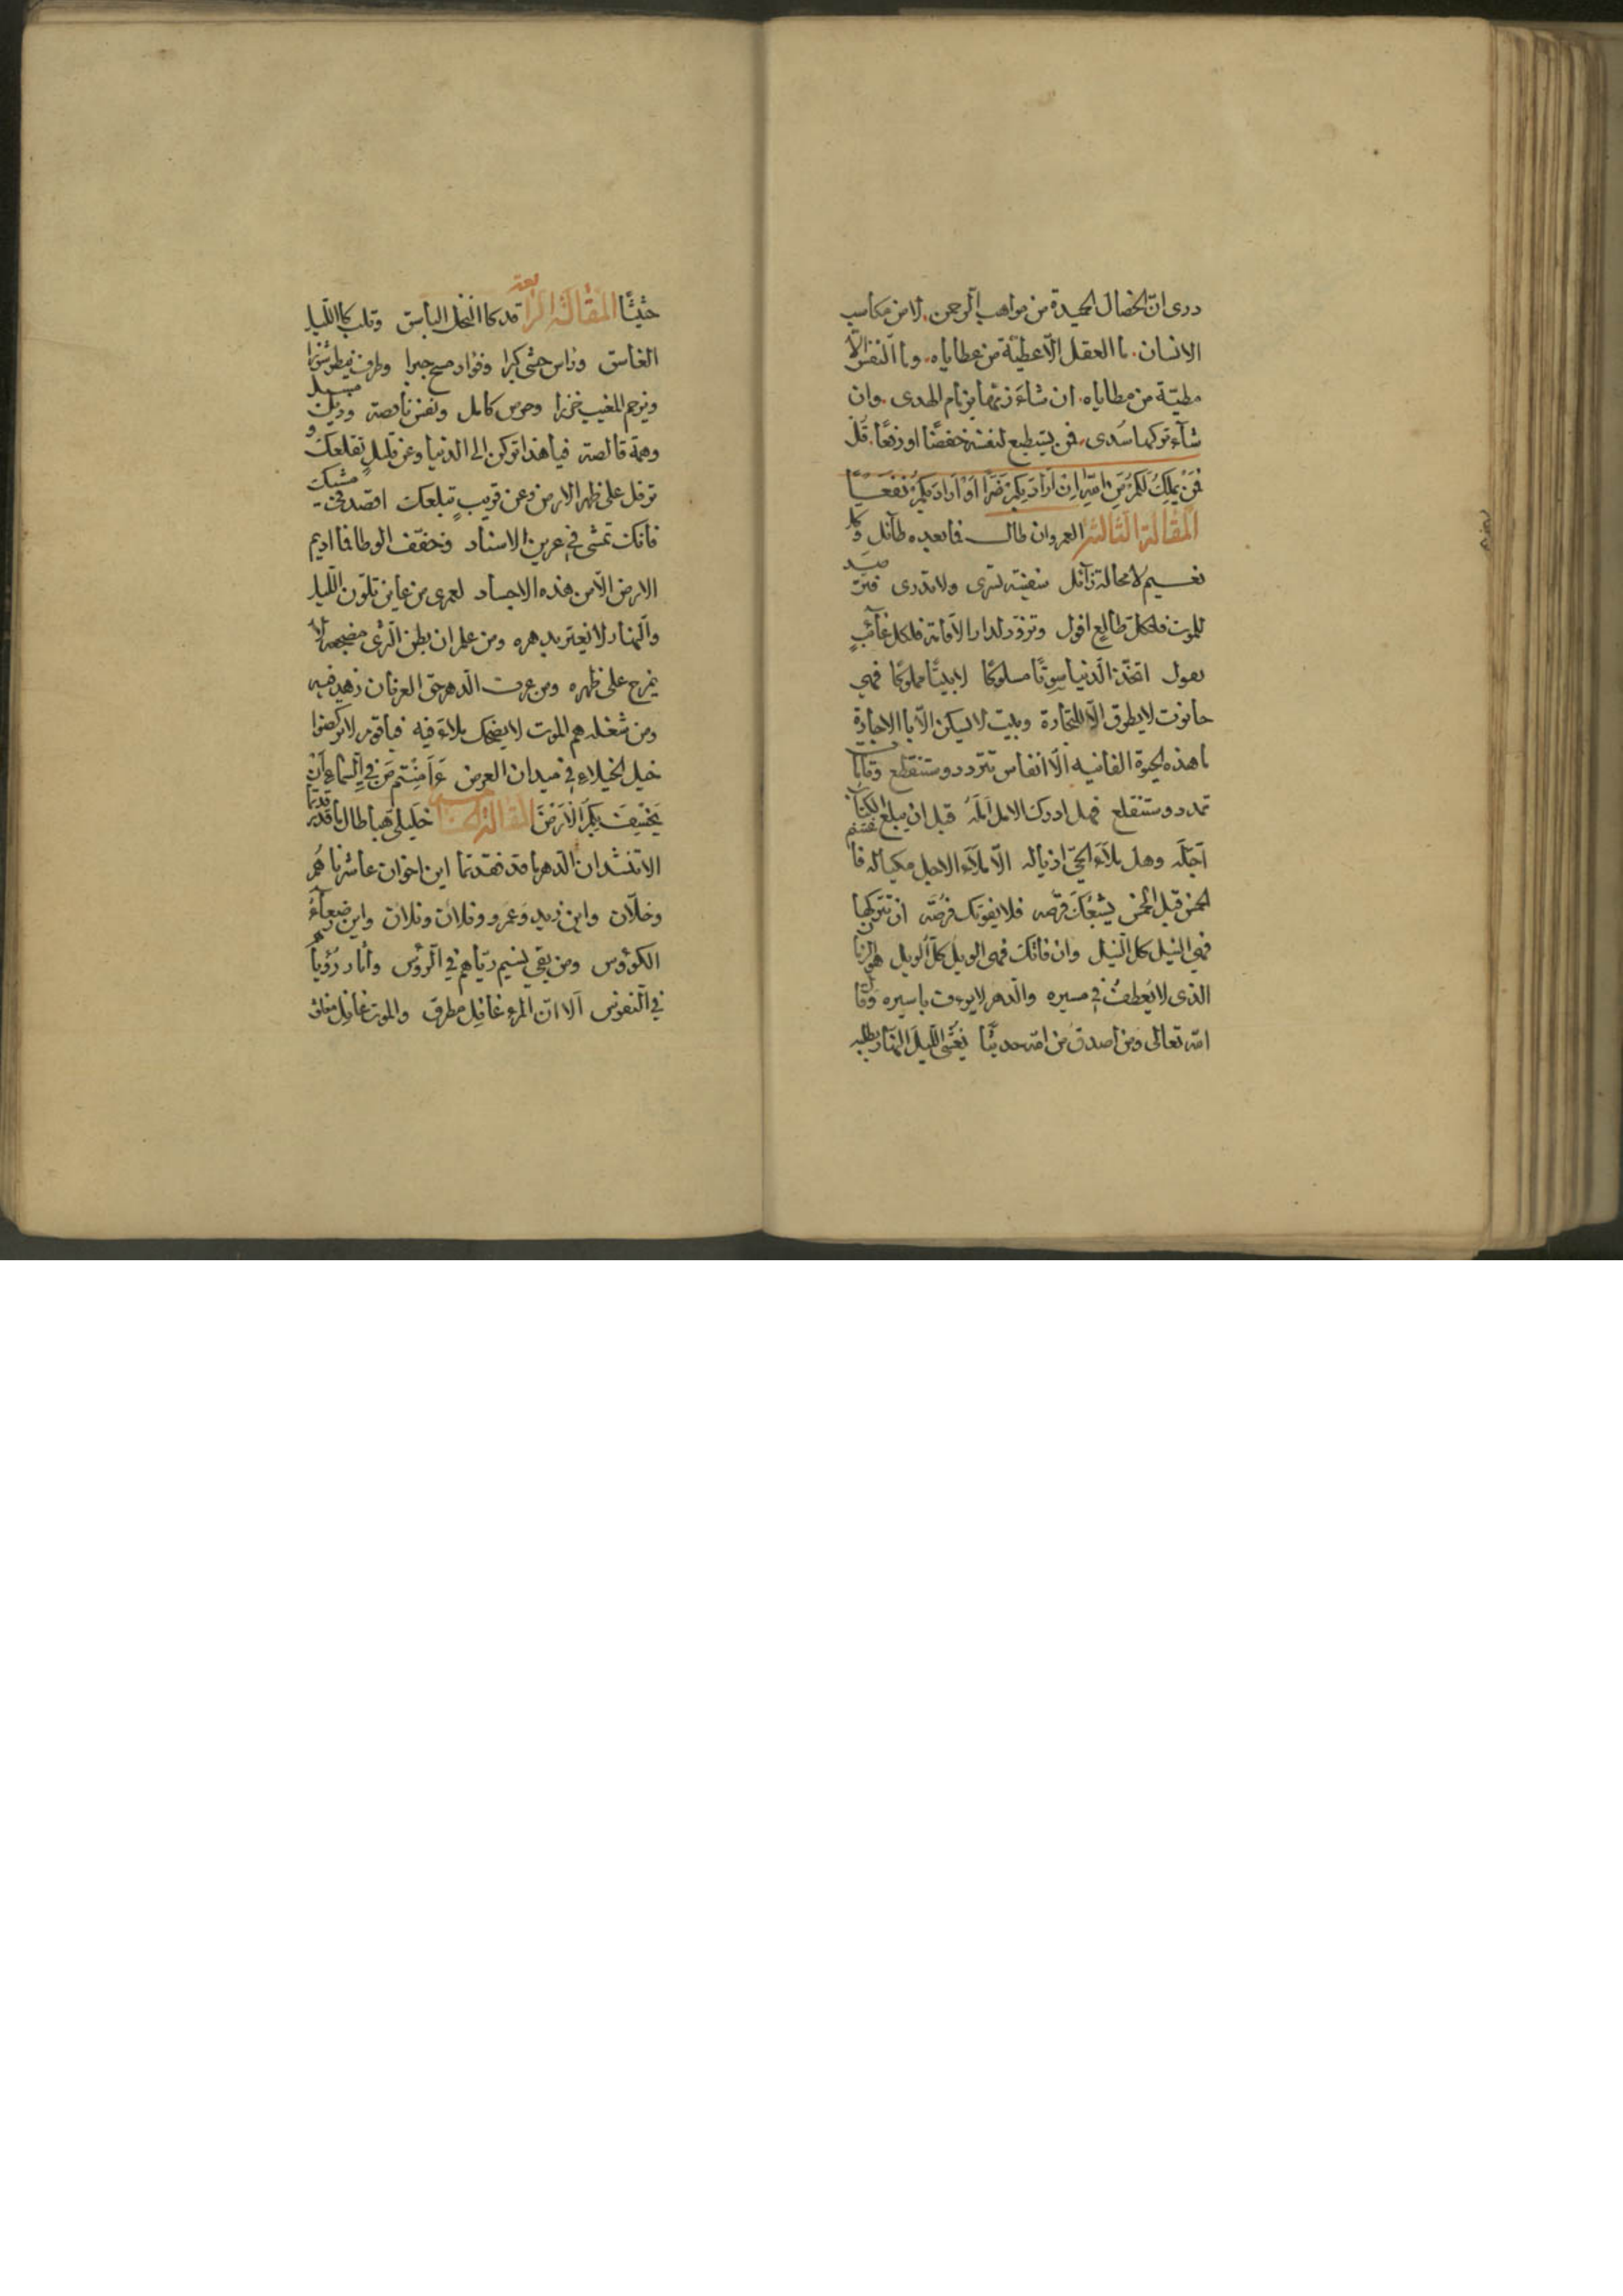 درى انّ الخصال الحميدة من مواهب الرّحمن لا من مكاسب
الانسان. ما العقل الّا عطيّة من عطاياه. وما النّفس الّا
مطيّة من مطاياه. ان شاء زمّها بزمام الهدى. وان
شاء تركها سُدى. فمن يستطيع لنفسه خفضًا او رفعًا. قُل
فَمَنْ يَملِكُ لَكُمْ مِنَ اللهِ اِنْ اَرَادَ بِكُمْ ضَرًّا اَوْ اَرَادَ بِكُمْ نَفعًا
المقالة الثالثة العمر وان طال فما بعده طآئل وكل
نعيم لا محالة زآئل سفينة تسرى ولا تدرى
للموت فلكل طالع افول وتزود لدار الاقامة فلكل غآئبٍ
اتخذ الدّنيا سوقًا مسلوكًا لا بيتًا مملوكًا فهى
حانوت لا يطرق الّا للتجارة وبيت لا يسكن الّا بالاجارة
ما هذه الحيوة الفانية الّا انفاس تتردد وستنقطع وقامات
تمدد وستنقلع فهل ادرك الامل اَمَلَهُ قبل ان يبلغ الكتاب
اَجَلَه وهل ملآء الحىّ اذياله الّا ملآء الاجل مكياله فاغتنم
الخمس قبل الخمس فلا يفوتك فرصة ان تتركها
فهى النيل كل النيل وان فاتك فهى الويل كل الويل هو الزمان
الذى لا يُعطفُ فى مسيره والدهر لا يرءف باسيره وقال
الله تعالى ومن اصدق من الله حديثًا يُغْشِى اللّيلَ النّهارَ يطلبه
حثيثًا المقالة الرّابعة قد كالنخل الباسق وقلب كالليل
الغاسق وراس حشى كبرا وفؤاد وطرف ينظر شزرا
وحرص كامل ونفس ناقصة ودين مسيل
وهمة قالصة فيا هذا تركن الى الدّنيا وعن قليل تقلعك و
ترفل على ظهر الارض وعن قريبٍ تبلعك اقصد فى مشيك
فانك تمشى فى عرين الاساد وخفف الوطا فما اديم
الارض الّا من هذه الاجساد لعمرى من عاين تلوّن الليل
والنهار لا يغتر بدهره ومن علم ان بطن الثّرى مضجعه لا
يمرح على ظهره ومن عرف الدّهر حقّ العرفان زهد فيه
ومن شغله هم الموت لا يضحك بملاء فيه فيا قوم لا تركضوا
خيل الخيلاء فى ميدان العرض ءَاَمِنْتُم مَنْ فِى السَّمَاءِ اَنْ
يَخْسِفَ بِكُمُ الْاَرْضَ المقالة الخامسة خليلى هبا طال ما قد رقدتما
الا تنشدان الدّهر ما قد فقدتما اين اخوان عاشرناهُم
وخلّان واين زيد وعمرو وفلان وفلان واين رضعآءُ
الكوؤس ومن بقى نسيم ريّاهم فى الرّؤس واثار رُؤياهم
فى النّفوس اَلا انّ المرء غافل مطرق والموت